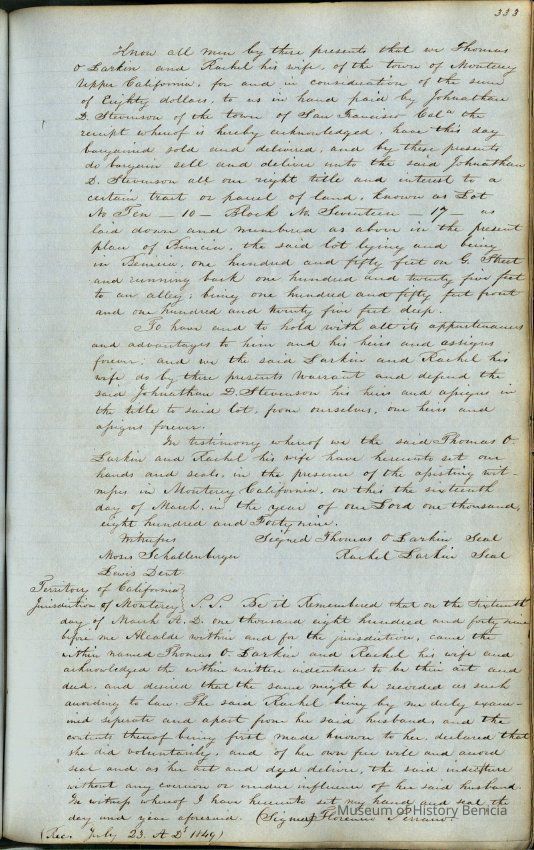 333
Know all men by these presents that we Thomas
O Larkin and Rachel his wife, of the town of Monterey
Upper California, for and in consideration of the sum
of Eighty dollars, to us in hand paid by Johnathan
D. Stevenson of the town of San Francisco Cala the
receipt whereof is hereby acknowledged, have this day
bargained sold and delivered, and by these presents
do bargain sell and deliver unto the said Johnathan
D. Stevenson all our right title and interest to a
certain tract or parcel of land, known as Lot
No Ten – 10 – Block No Seventeen – 17 – as
laid down and numbered as above in the present
plan of Benicia, the said lot lying and being
in Benicia, one hundred and fifty feet on G. Street
and running back one hundred and twenty five feet
to an alley; being one hundred and fifty feet front
and one hundred and twenty five feet deep.
To have and to hold with all its appurtenances
and advantages to him and his heirs and assigns
forever; and we the said Larkin and Rachel his
wife do by these presents Warrant and defend the
said Johnathan D. Stevenson his heirs and assigns in
the title to said lot, from ourselves, our heirs and
assigns forever.
In testimony whereof we the said Thomas O.
Larkin and Rachel his wife have hereunto set our
hands and seals, in the presence of the assisting wit-
nesses in Monterey California, on this the sixteenth
day of March, in the year of our Lord one thousand,
eight hundred and Forty nine.
Witnesses Signed Thomas O Larkin Seal
Moses Schallenberger Rachel Larkin Seal
Lewis Dent
Territory of California }
Jurisdiction of Monterey } S.S. Be it Remembered that on the Sixteenth
day of March A. D. one thousand eight hundred and forty nine
before me Alcalde within and for the jurisdiction, came the
within named Thomas O Larkin and Rachel his wife and
acknowledged the within written indenture to be their act and
deed, and desired that the same might be recorded as such
according to law. The said Rachel being by me duly exam-
ined seperate and apart from her said husband, and the
contents thereof being first made known to her, declared that
she did voluntarily, and of her own free will and accord
seal and as her act and deed deliver, the said indenture
without any coercion or undue influence of her said husband
In witness whereof I have hereunto set my hand and seal the
day and year aforesaid. (Signed) Florencio Serrano.
(Rec. July 23. A D. 1849)
Museum of History Benicia